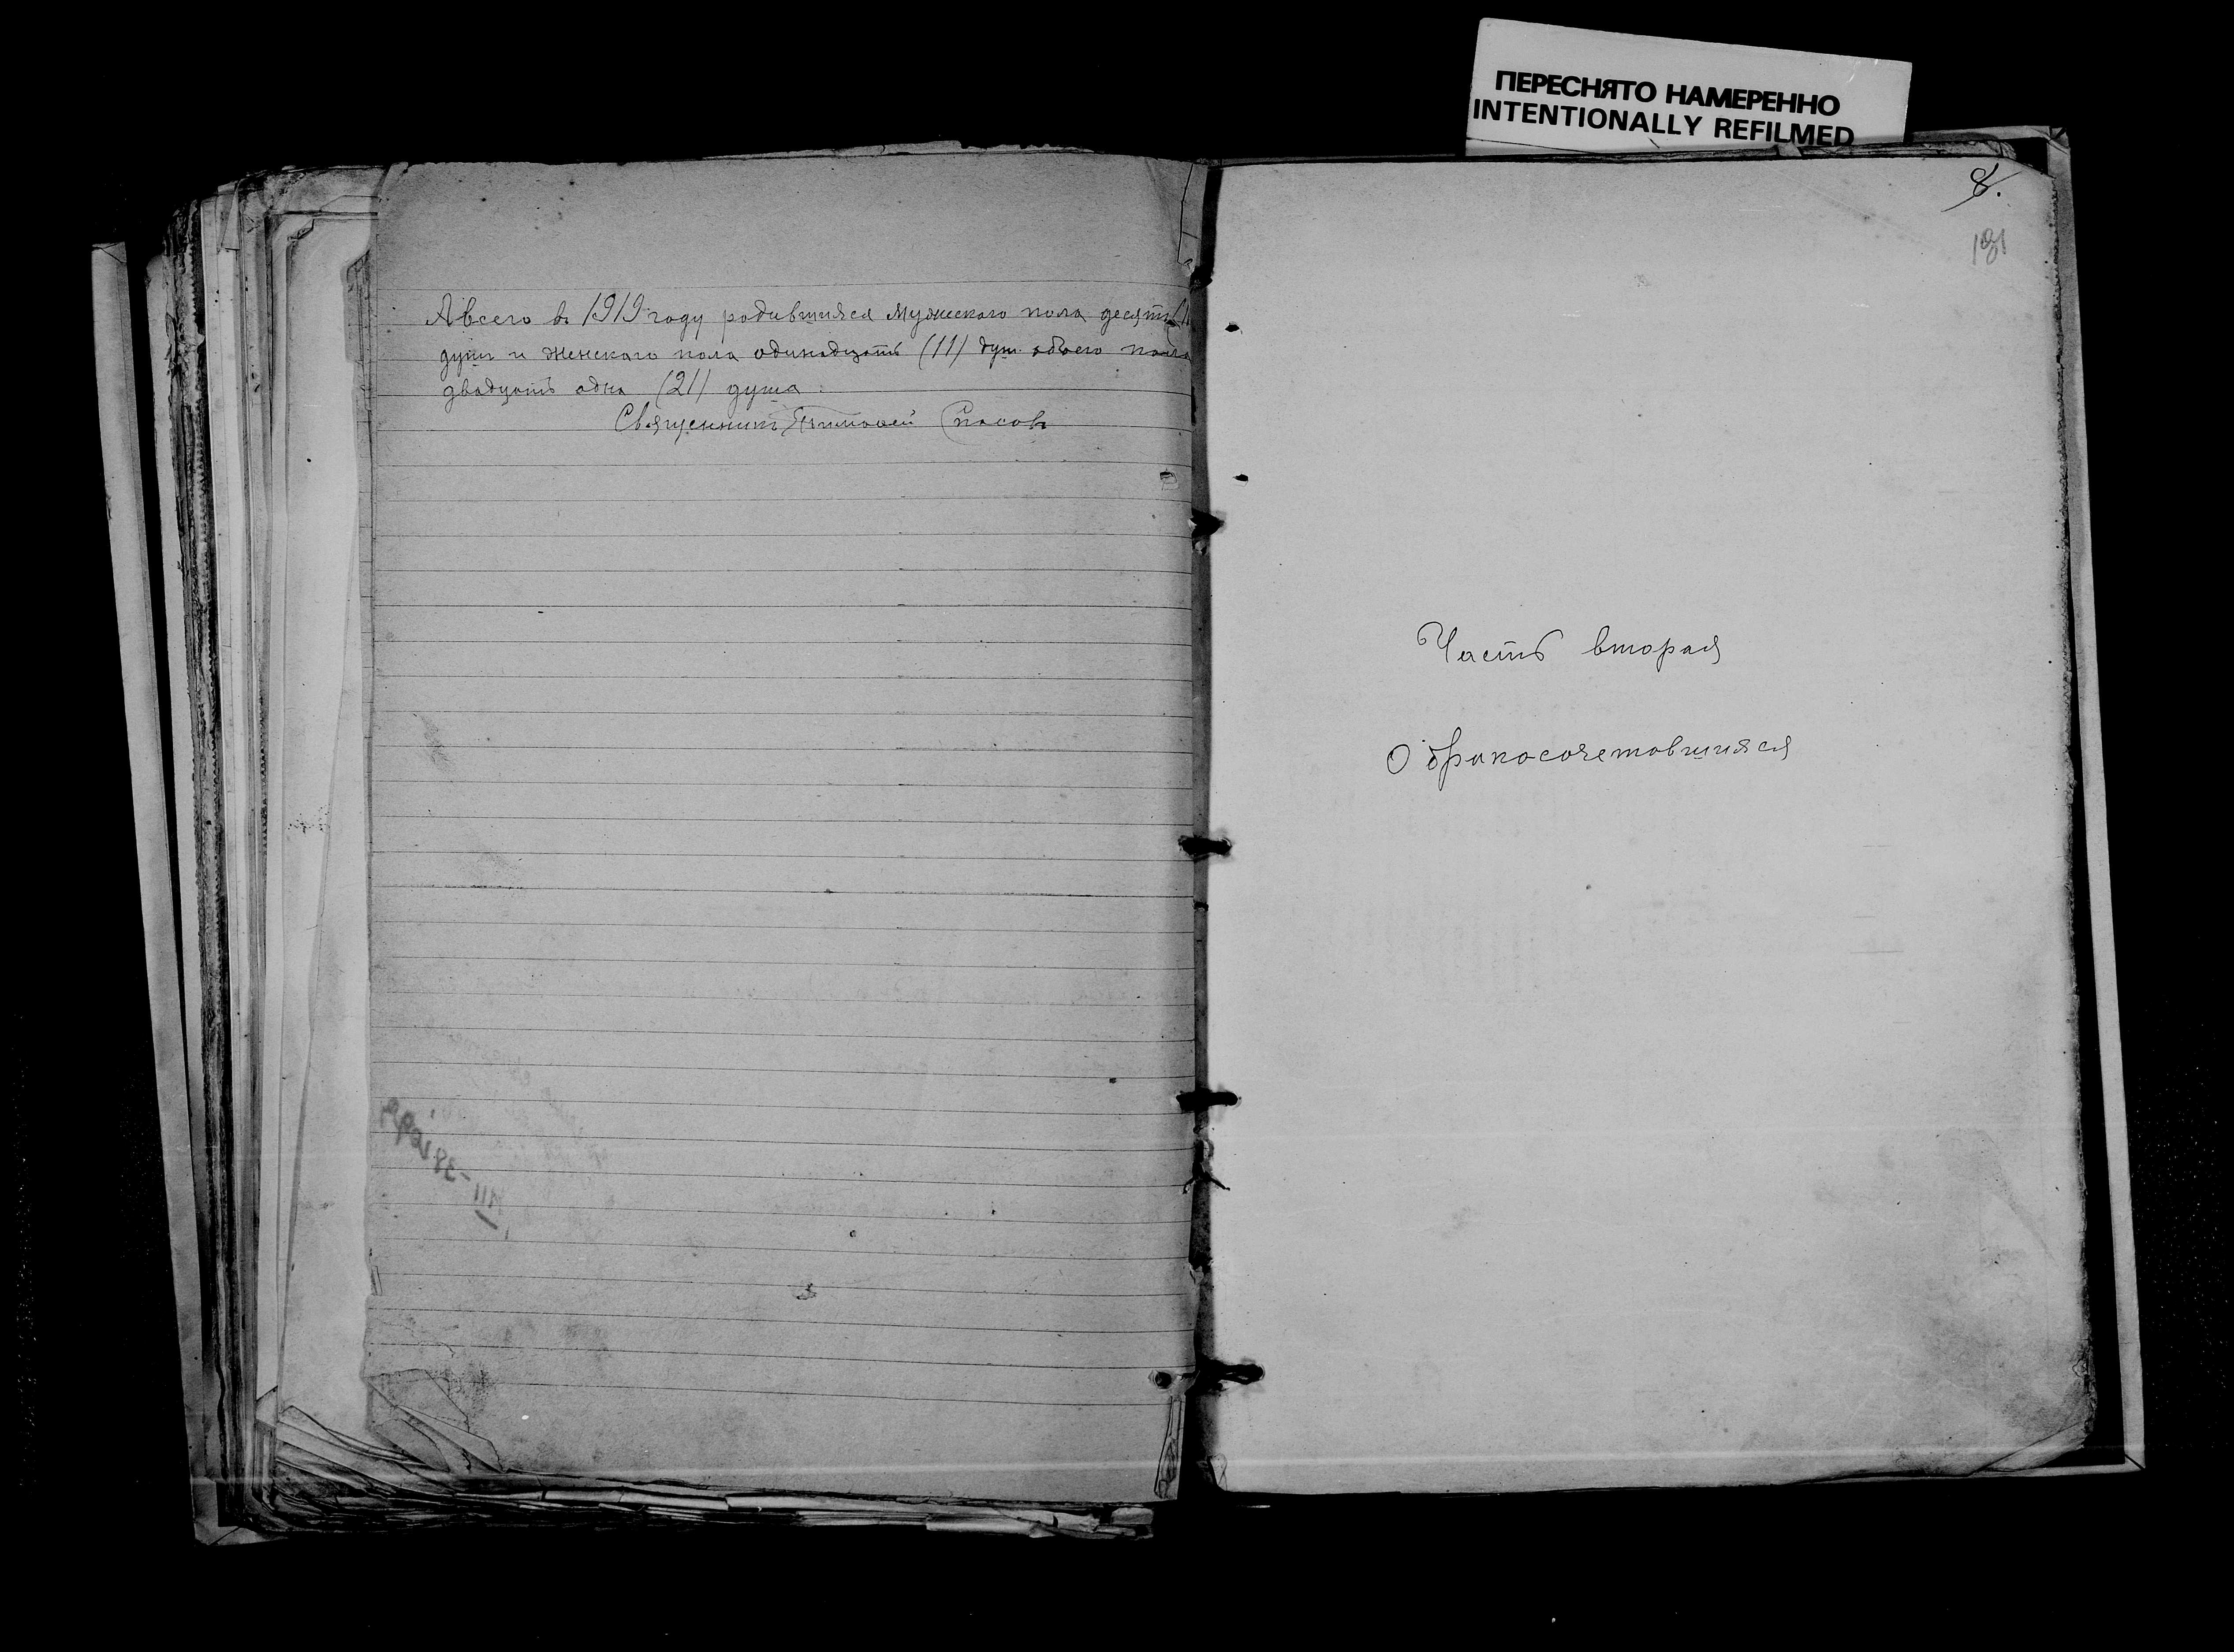 ПЕРЕСНЯТО НАМЕРЕННО
INTENTIONALLY REFILMED
А всего въ 1919 году родившихся мужеского пола десять
душъ и женского пола одинадцать (11) душ. обоего пола
двадцать одна (21) душа.
Священникъ Тимофей Спасов
8.
Часть вторая
О бракосочетавшихся